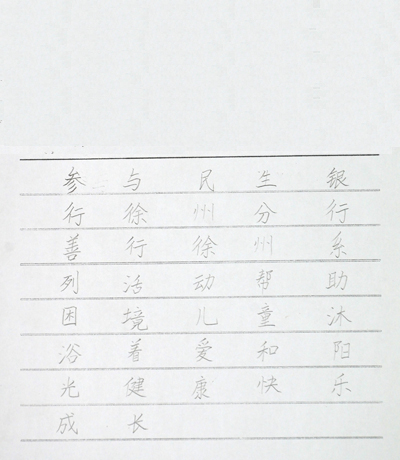 参与民生银
行徐州分行
善行徐州系
列活动帮助
困境儿童沐
浴着爱和阳
光健康快乐
成长